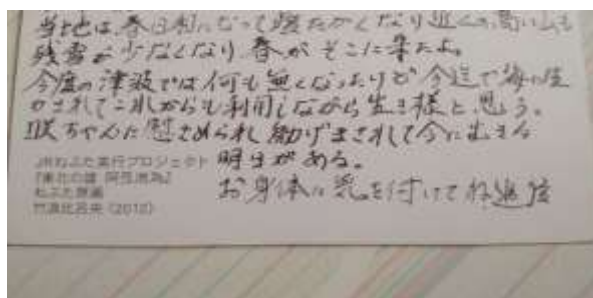 当地は、春日和になって暖たかくなり近くの高い山も
残雪が少なくなり春がそこに来たよ。
今度の津波では何も無くなったけど今迄で海に生
かされてこれからも利用しながら生き様と思う。
咲ちゃんに慰さめられ励げまされて今に生きる
明日がある。
お身体に気を付けてね
JRねぶた実行プロジェクト
『東北の雄 阿弖流為』
ねぶた原画
竹浪比呂央〈2012〉